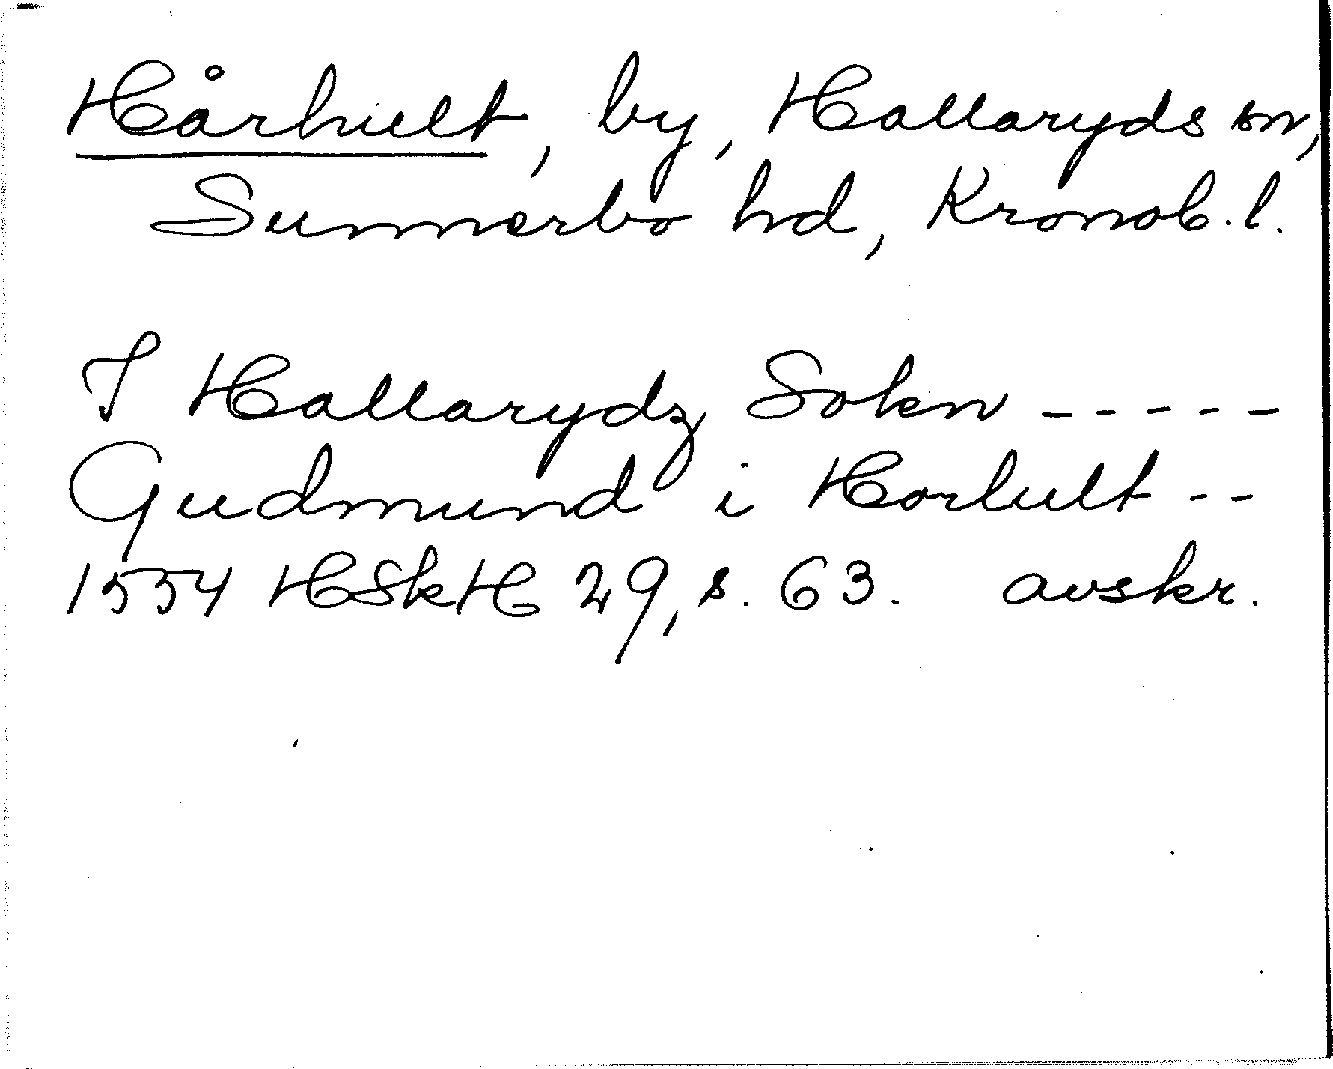 Hårhult, by, Hallaryds sn,
Sunnerbo hd, Kronob. l.
I Hallarydz Sokn - - - - -
Gudmund i Horlult - -
1554 HSkH 29, s. 63. avskr.